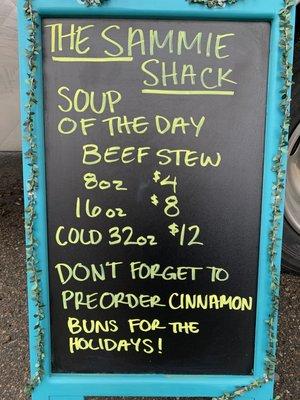 THE SAMMIE
SHACK
SOUP
OF THE DAY
BEEF STEW
8oz $4
16oz $8
COLD 32oz $12
DON'T FORGET TO
PREORDER CINNAMON
BUNS FOR THE
HOLIDAYS!